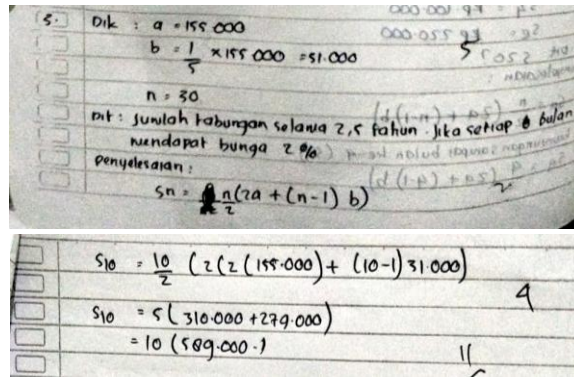 5. Dik : a = 155 000
b = 1/5 x 155 000 = 51.000
n = 30
Dit : Jumlah tabungan selama 2,5 tahun. Jika setiap 6 bulan
mendapat bunga 2%
Penyelesaian :
Sn = n/2 (2a + (n-1) b)
S10 = 10/2 (2(2(155.000) + (10-1) 31.000)
4
S10 = 5(310.000 + 279.000)
= 10 (589.000.)
11